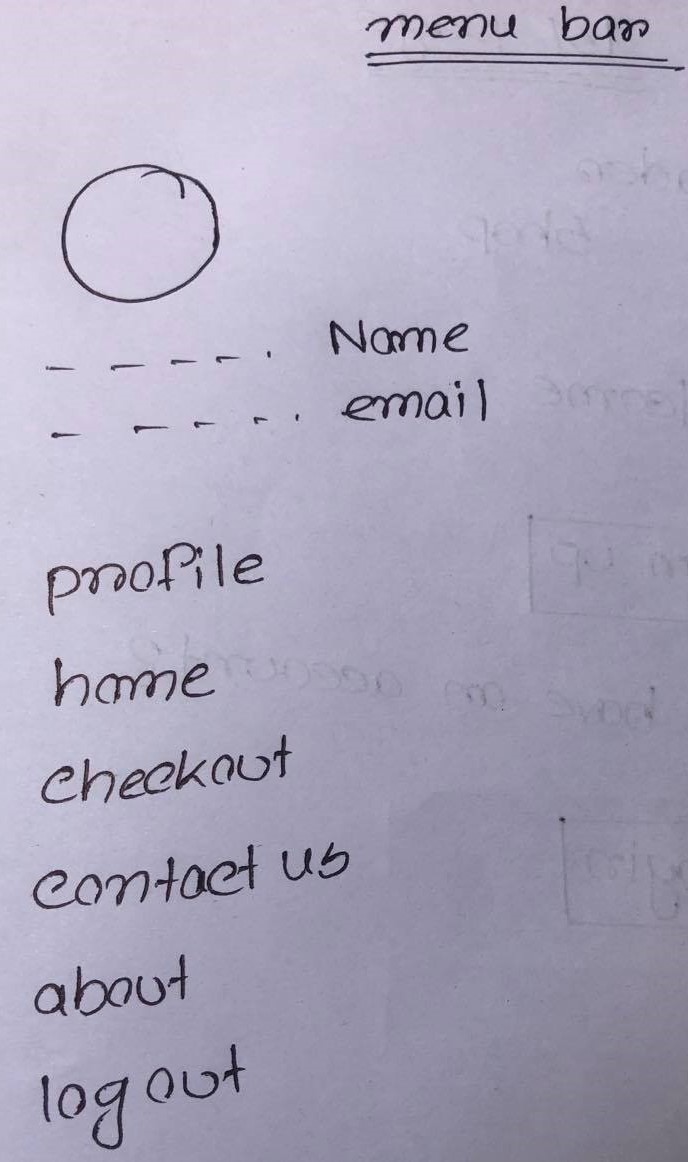 menu bar
Name
email
profile
home
checkout
contact us
about
log out